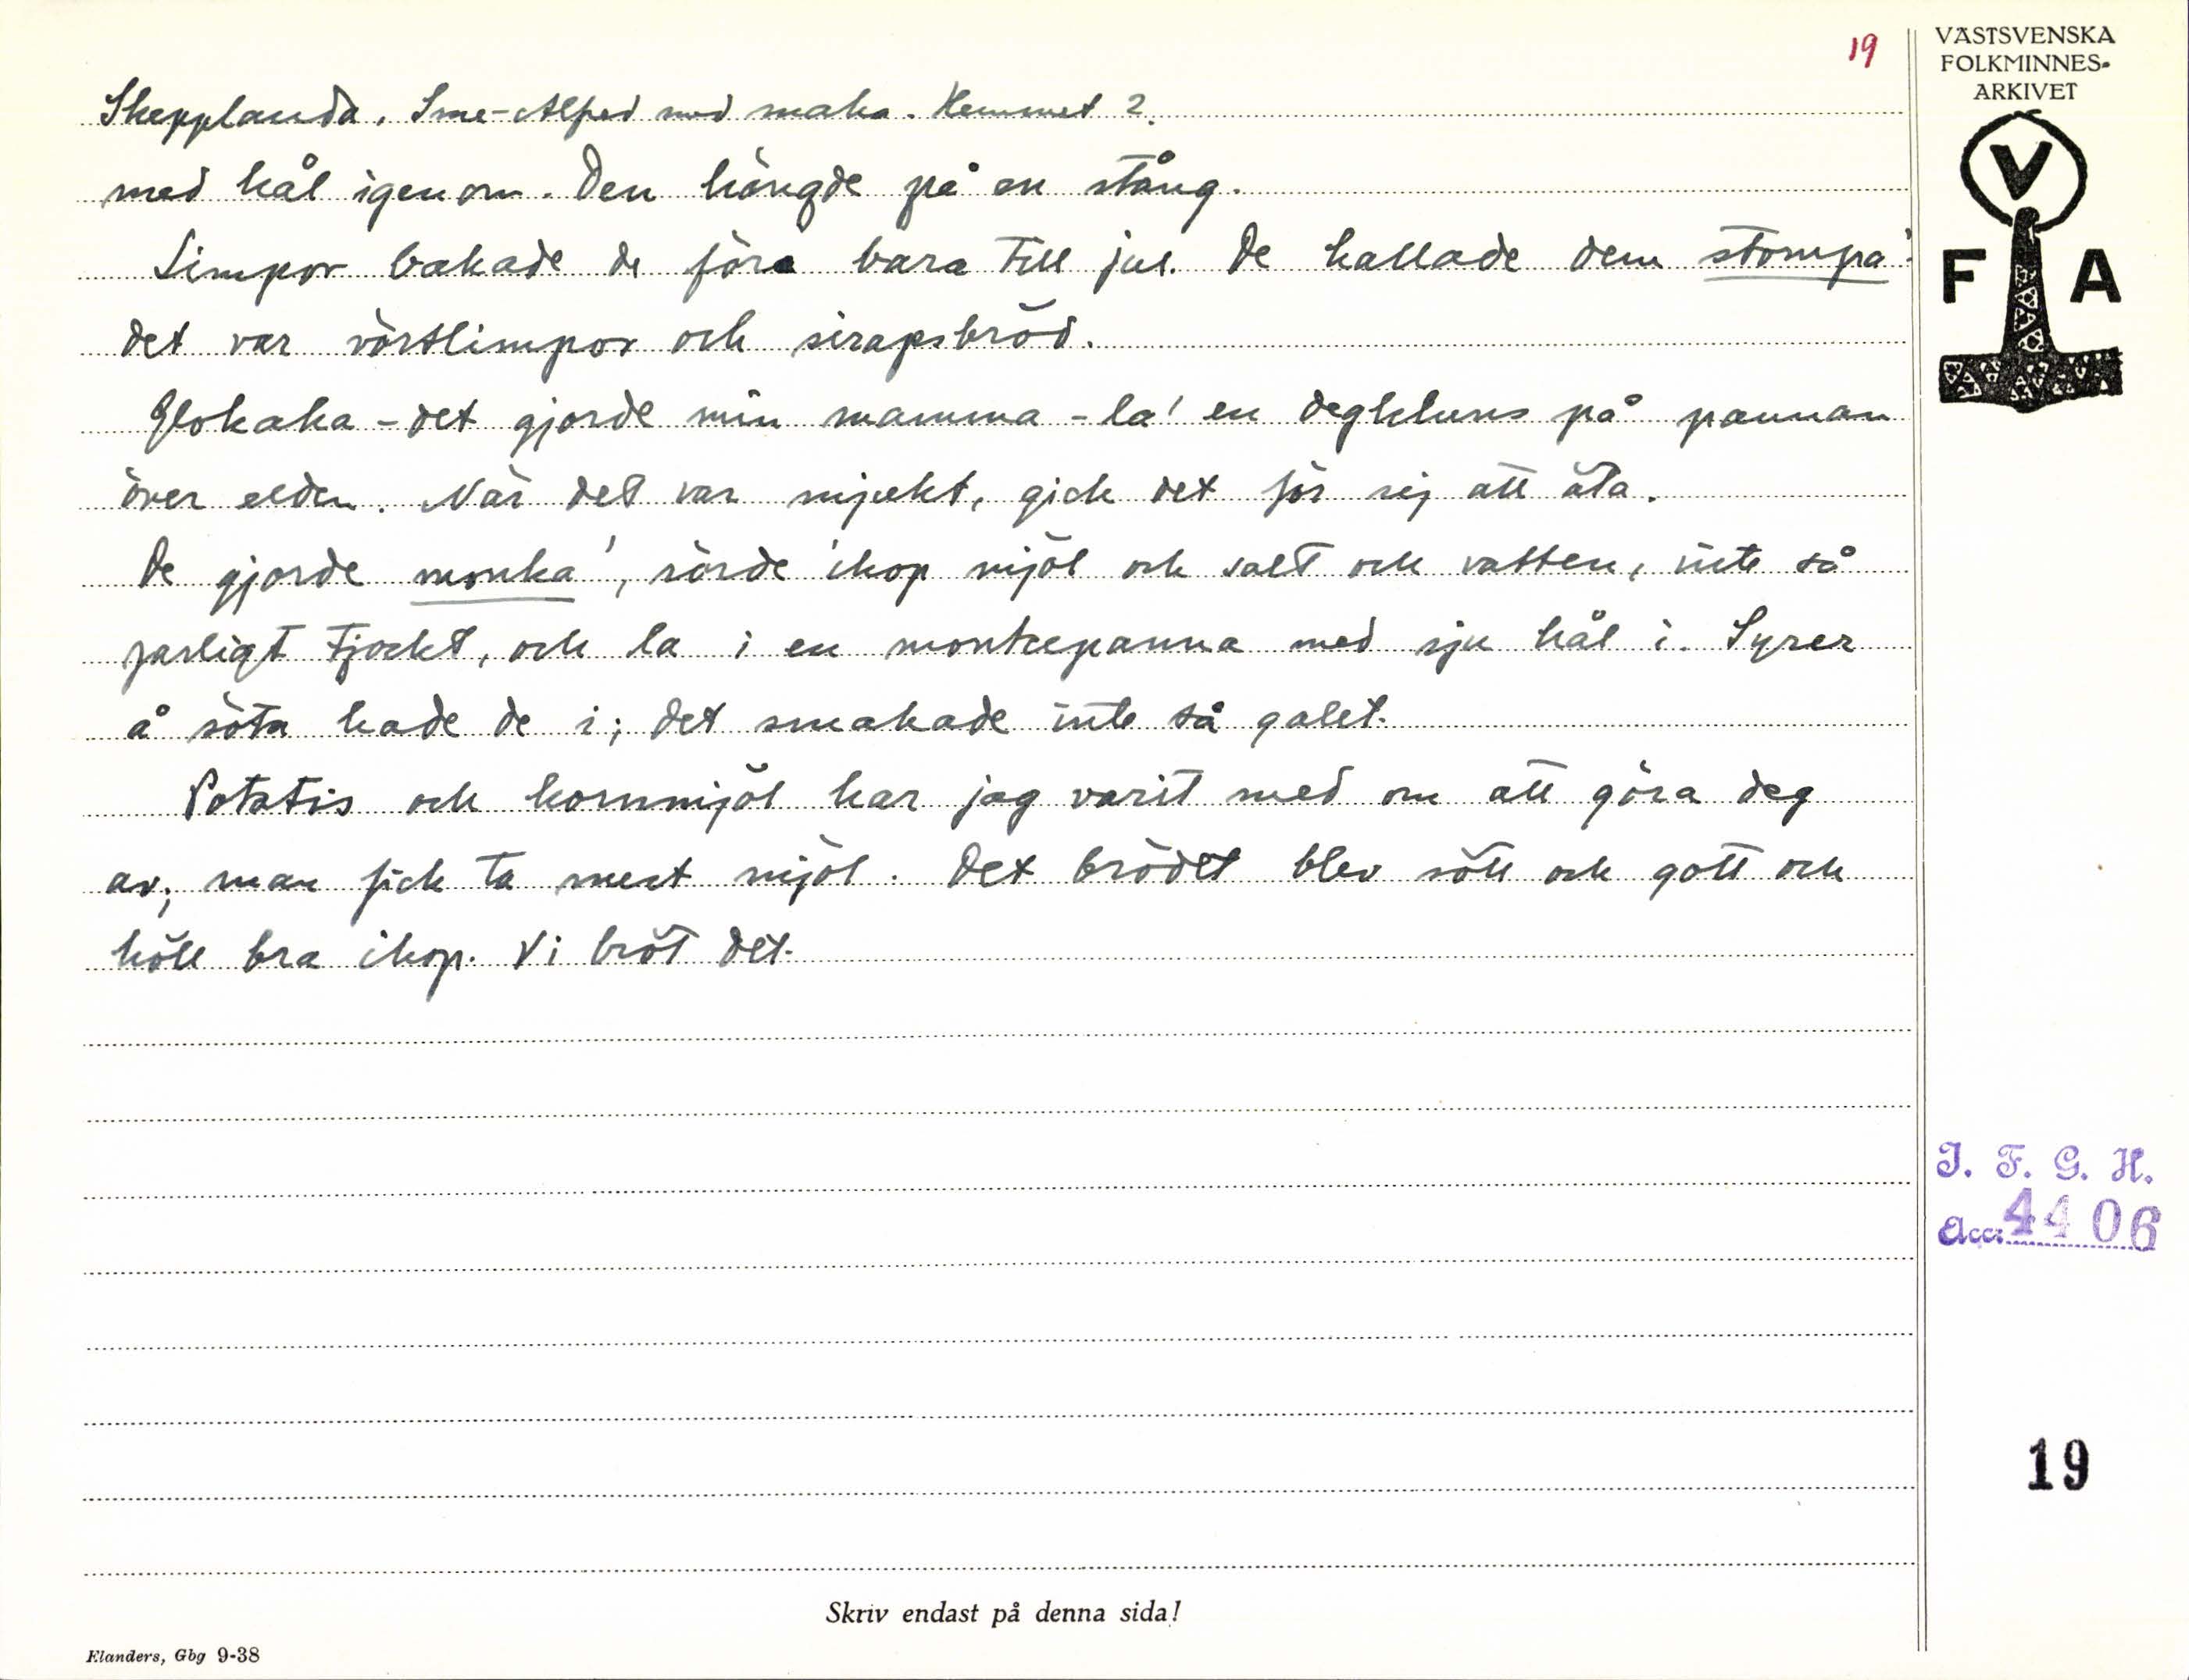 19
VÄSTSVENSKA
FOLKMINNES-
ARKIVET
V
F A
Skepplanda. Sme-Alfred med maka. Hemmet 2.
med hål igenom. Den hängde på en stång.
Limpor bakade de föra bara till jul. De kallade dem stompa'.
det var vörtlimpor och sirapsbröd.
Glokaka - det gjorde min mamma - la' en degkluns på pannan
över elden. När det var mjukt, gick det för sej att äta.
De gjorde monka', rörde ihop mjöl och salt och vatten, inte så
farligt tjockt, och la i en monkepanna med sju hål i. Syrer
å söta hade de i; det smakade inte så galet.
Potatis och kornmjöl har jag varit med om att göra deg
av; man fick ta mest mjöl. Det brödet blev sött och gott och
höll bra ihop. Vi bröt det.
I. F. G. H.
Acc: 4406
19
Skriv endast på denna sida!
Elanders, Gbg 9-38